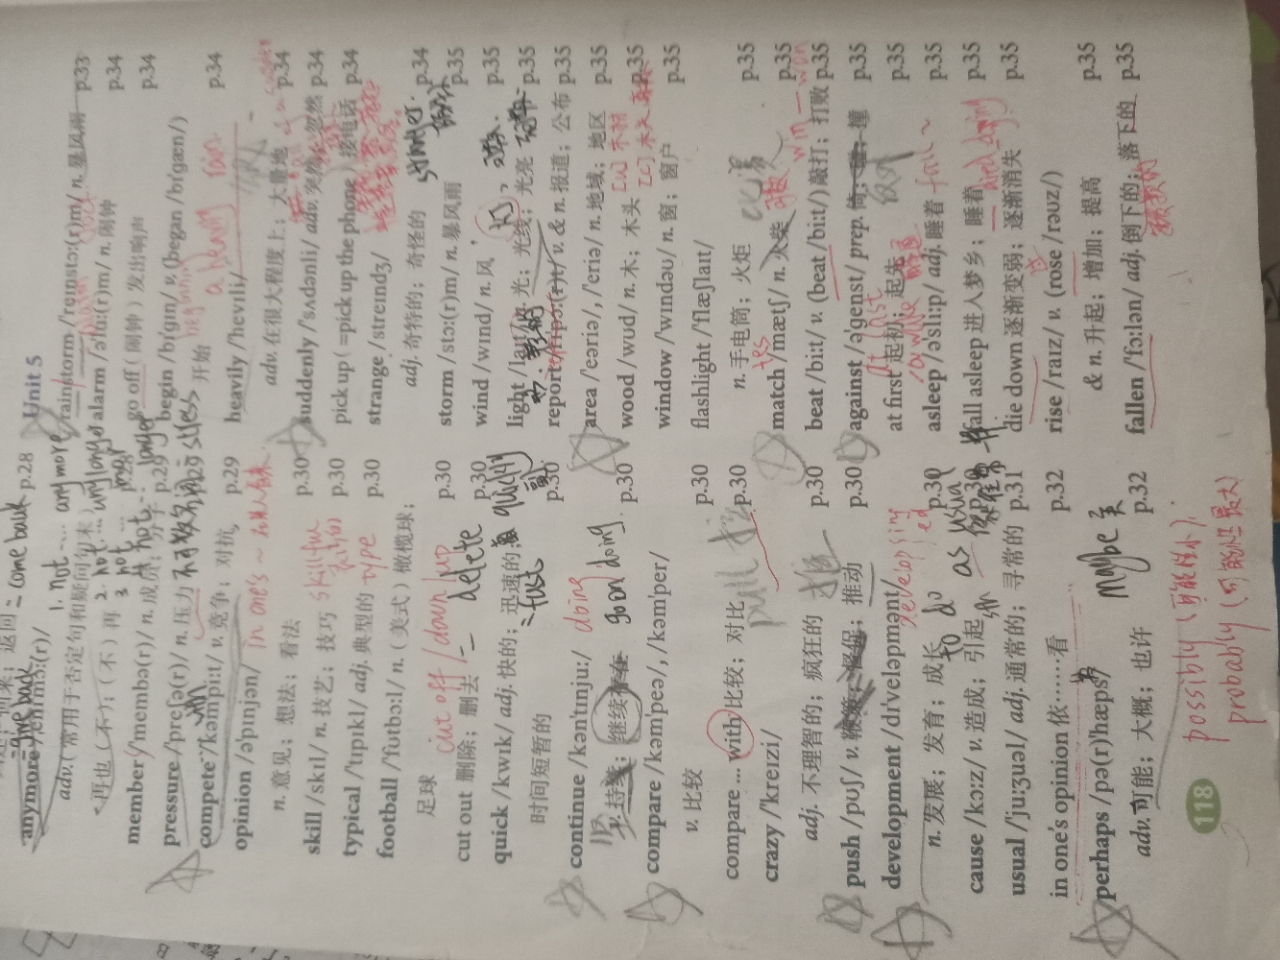 anymore /ˌeniˈmɔː(r)/ p.28
adv. (常用于否定句和疑问句末)
再也(不);(不)再
member /ˈmembə(r)/ n. 成员;分子 p.29
pressure /ˈpreʃə(r)/ n. 压力
compete /kəmˈpiːt/ v. 竞争;对抗 p.29
opinion /əˈpɪnjən/
n. 意见;想法;看法 p.30
skill /skɪl/ n. 技艺;技巧 p.30
typical /ˈtɪpɪkl/ adj. 典型的 p.30
football /ˈfʊtbɔːl/ n. (美式)橄榄球;
足球 p.30
cut out 删除;删去 p.30
quick /kwɪk/ adj. 快的;迅速的;
时间短暂的 p.30
continue /kənˈtɪnjuː/
v. 持续;继续存在 p.30
compare /kəmˈpeə/, /kəmˈper/
v. 比较 p.30
compare ... with 比较;对比 p.30
crazy /ˈkreɪzi/
adj. 不理智的;疯狂的 p.30
push /pʊʃ/ v. 鞭策;督促;推动 p.30
development /dɪˈveləpmənt/
n. 发展;发育;成长 p.30
cause /kɔːz/ v. 造成;引起 p.30
usual /ˈjuːʒuəl/ adj. 通常的;寻常的 p.31
in one's opinion 依……看 p.32
perhaps /pə(r)ˈhæps/
adv. 可能;大概;也许 p.32
come back
1. not ... any more
2. not ... any longer
3 no more
4 no longer
不可数名词 stress
in one's ~ 在某人看来
skillful
type
cut off / down / up
delete
quickly 副
= fast
doing
go on doing
pull 拉
推
developing
ed
to do
as usual
像往常一样
maybe
possibly (可能性小)
probably (可能性最大)
118
Unit 5
rainstorm /ˈreɪnstɔː(r)m/ n. 暴风雨 p.33
alarm /əˈlɑː(r)m/ n. 闹钟 p.34
go off (闹钟)发出响声 p.34
begin /bɪˈɡɪn/ v. (began /bɪˈɡæn/)
开始 p.34
heavily /ˈhevɪli/
adv. 在很大程度上;大量地 p.34
suddenly /ˈsʌdənli/ adv. 突然;忽然 p.34
pick up (=pick up the phone) 接电话 p.34
strange /streɪndʒ/
adj. 奇特的;奇怪的 p.34
storm /stɔː(r)m/ n. 暴风雨 p.35
wind /wɪnd/ n. 风 p.35
light /laɪt/ n. 光;光线;光亮 p.35
report /rɪˈpɔː(r)t/ v. & n. 报道;公布 p.35
area /ˈeəriə/, /ˈeriə/ n. 地域;地区 p.35
wood /wʊd/ n. 木;木头 p.35
window /ˈwɪndəʊ/ n. 窗;窗户 p.35
flashlight /ˈflæʃlaɪt/
n. 手电筒;火炬 p.35
match /mætʃ/ n. 火柴 p.35
beat /biːt/ v. (beat /biːt/) 敲打;打败 p.35
against /əˈɡenst/ prep. 倚;碰;撞 p.35
at first 起初;起先 p.35
asleep /əˈsliːp/ adj. 睡着 p.35
fall asleep 进入梦乡;睡着 p.35
die down 逐渐变弱;逐渐消失 p.35
rise /raɪz/ v. (rose /rəʊz/)
& n. 升起;增加;提高 p.35
fallen /ˈfɔːlən/ adj. 倒下的;落下的 p.35
beginning
a heavy rain
stranger
灯
[U] 木材
[C] 木头
tes
win — won
反对
at last
awake
fall ~
and dying